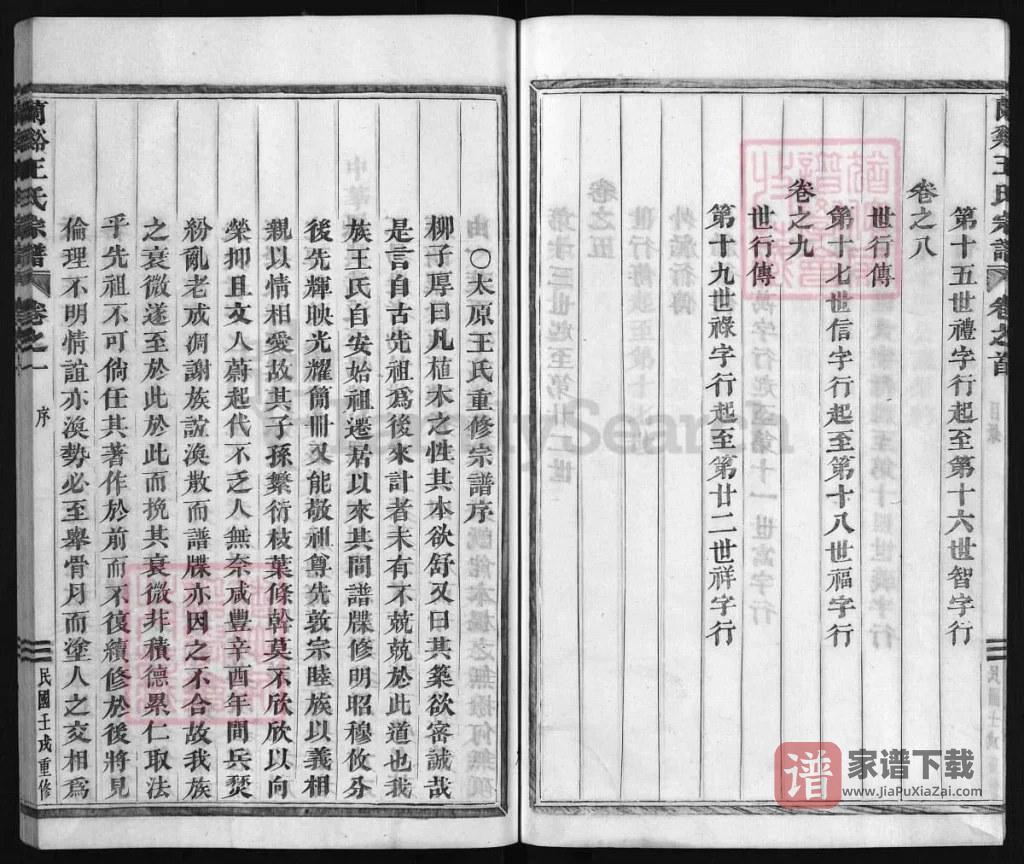 蘭谿王氏宗譜 卷之首
卷之八
第十五世禮字行起至第十六世智字行
世行傳
第十七世信字行起至第十八世福字行
卷之九
世行傳
第十九世祿字行起至第廿二世祥字行
○太原王氏重修宗譜序
柳子厚曰凡植木之性其本欲舒又曰其築欲密誠哉
是言自古先祖爲後來計者未有不兢兢於此道也我
族王氏自安始祖遷居以來其間譜牒修明昭穆攸分
後先輝映光耀簡冊又能敬祖尊先敦宗睦族以義相
親以情相愛故其子孫繁衍枝葉條幹莫不欣欣以向
榮抑且文人蔚起代不乏人無奈咸豐辛酉年間兵燹
紛亂老成凋謝族誼渙散而譜牒亦因之不合故我族
之衰微遂至於此於此而挽其衰微非積德累仁取法
乎先祖不可倘任其著作於前而不復續修於後將見
倫理不明情誼亦渙勢必至舉骨月而塗人之交相爲
蘭谿王氏宗譜 卷之一 序 民國壬戌重修
家谱下载
www.JiaPuXiaZai.com
谱